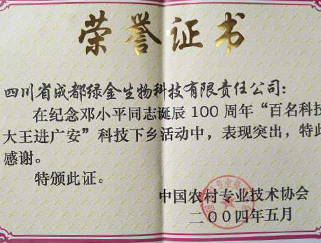 荣誉证书
四川省成都绿金生物科技有限责任公司：
在纪念邓小平同志诞辰100周年“百名科技
大王进广安”科技下乡活动中，表现突出，特此
感谢。
特颁此证。
中国农村专业技术协会
二〇〇四年五月